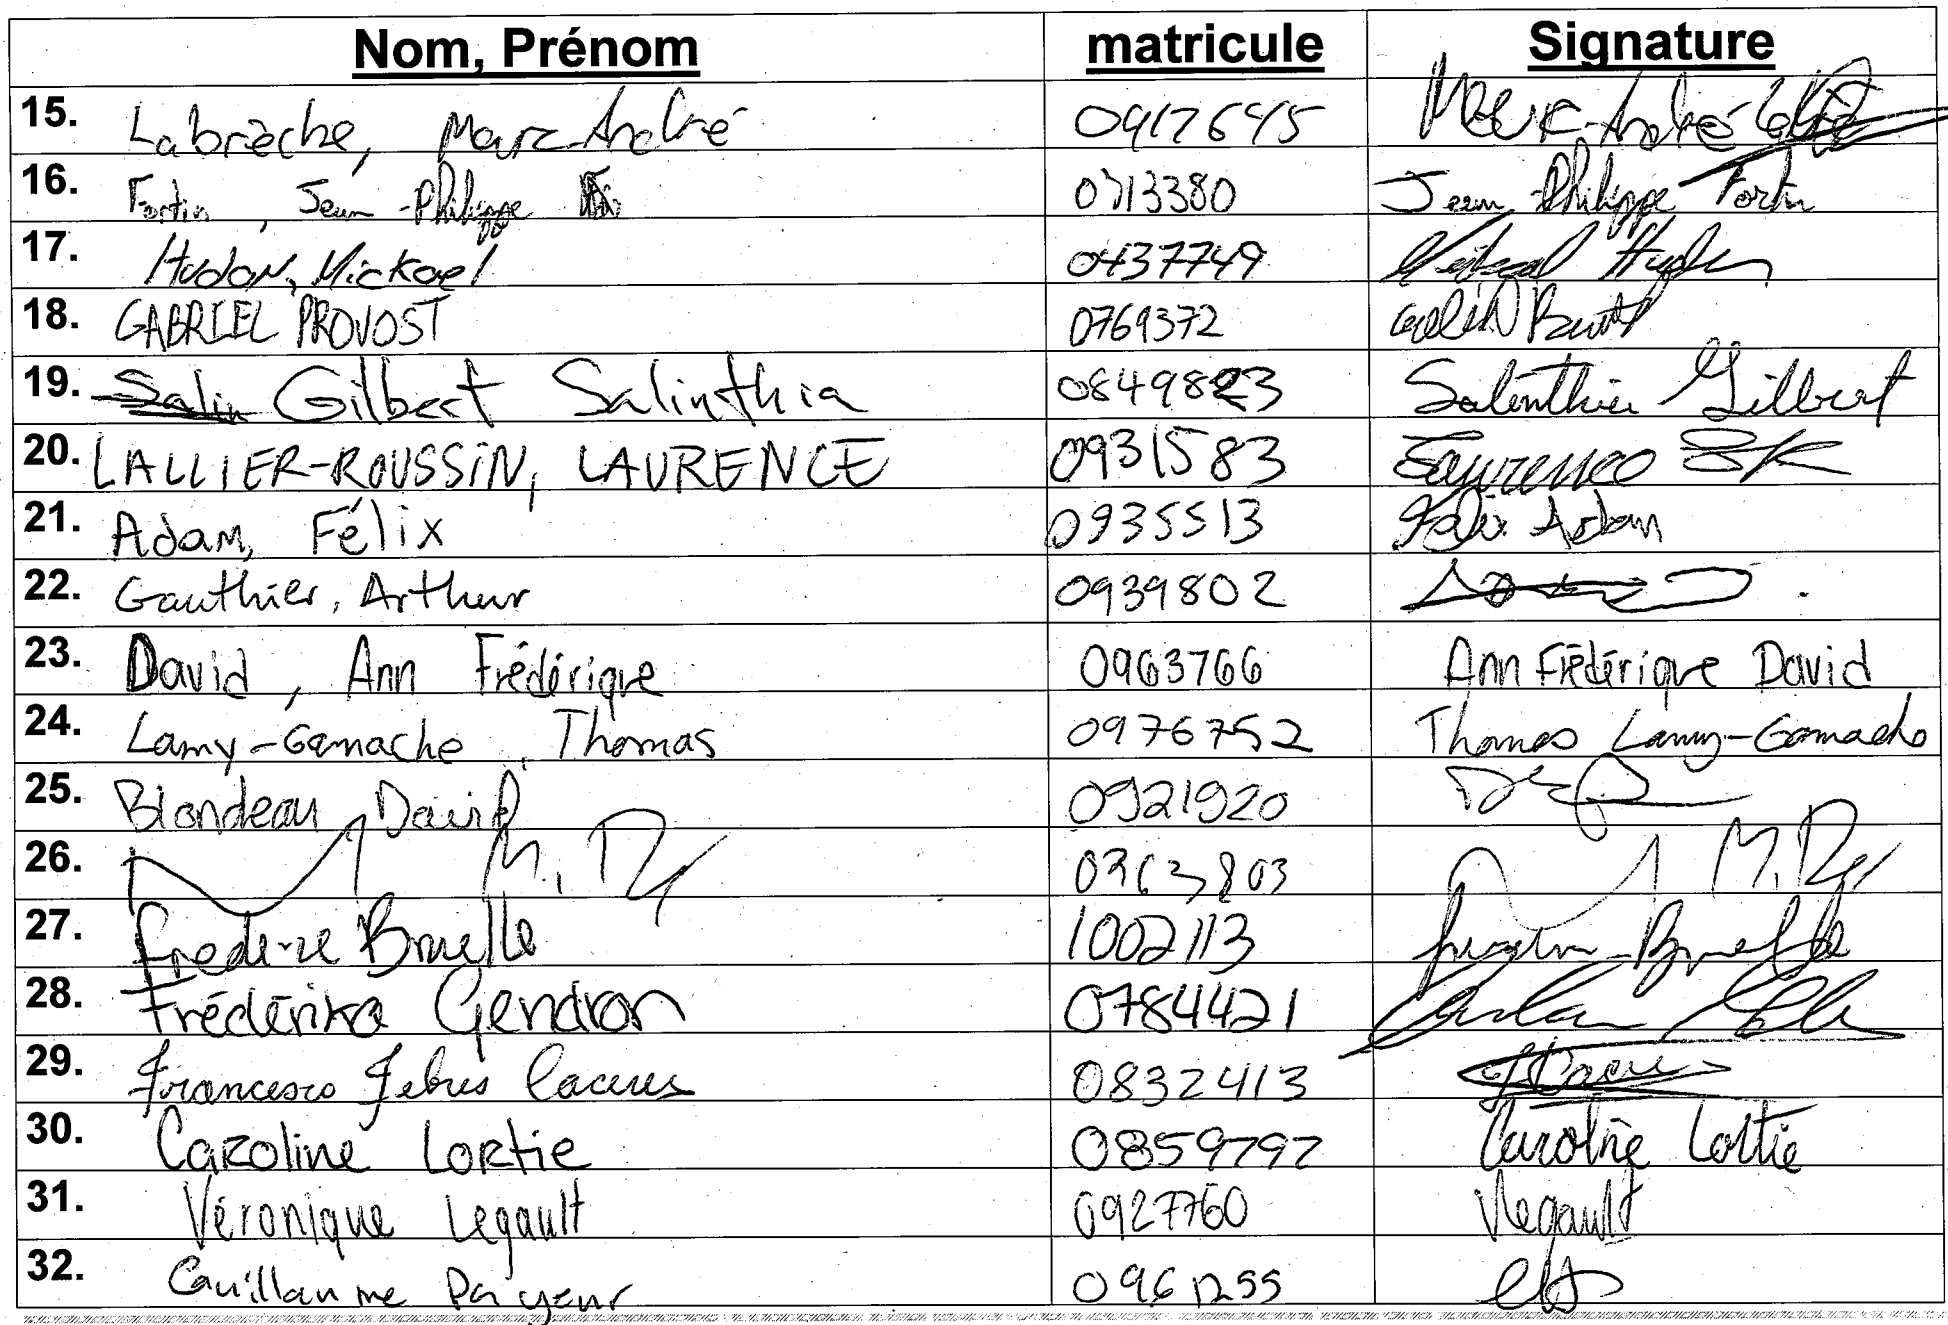 Nom, Prénom matricule Signature
15. Labrèche, Marc-André 0917645 Marc-André
16. Fortin, Jean-Philippe 0713380 Jean-Philippe Fortin
17. Hudon, Mickael 0437749 Hudon
18. GABRIEL PROVOST 0769372
19. Salin Gilbert Salinthia 0849823 Salinthia Gilbert
20. LALLIER-ROUSSIN, LAURENCE 0931583 Laurence
21. Adam, Félix 0935513 Félix Adam
22. Gauthier, Arthur 0939802
23. David, Ann Frédérique 0963766 Ann Frédérique David
24. Lamy-Gamache, Thomas 0976752 Thomas Lamy-Gamache
25. Blondeau, David 0921920
26.
27. Frederic Bruelle 1002113 Bruelle
28. Frédérika Gendron 0784421
29. Francesco Febres Caceres 0832413
30. Caroline Lortie 0859797 Caroline Lortie
31. Véronique Legault 0927760 VLegault
32. Guillaume Payeur 0961255